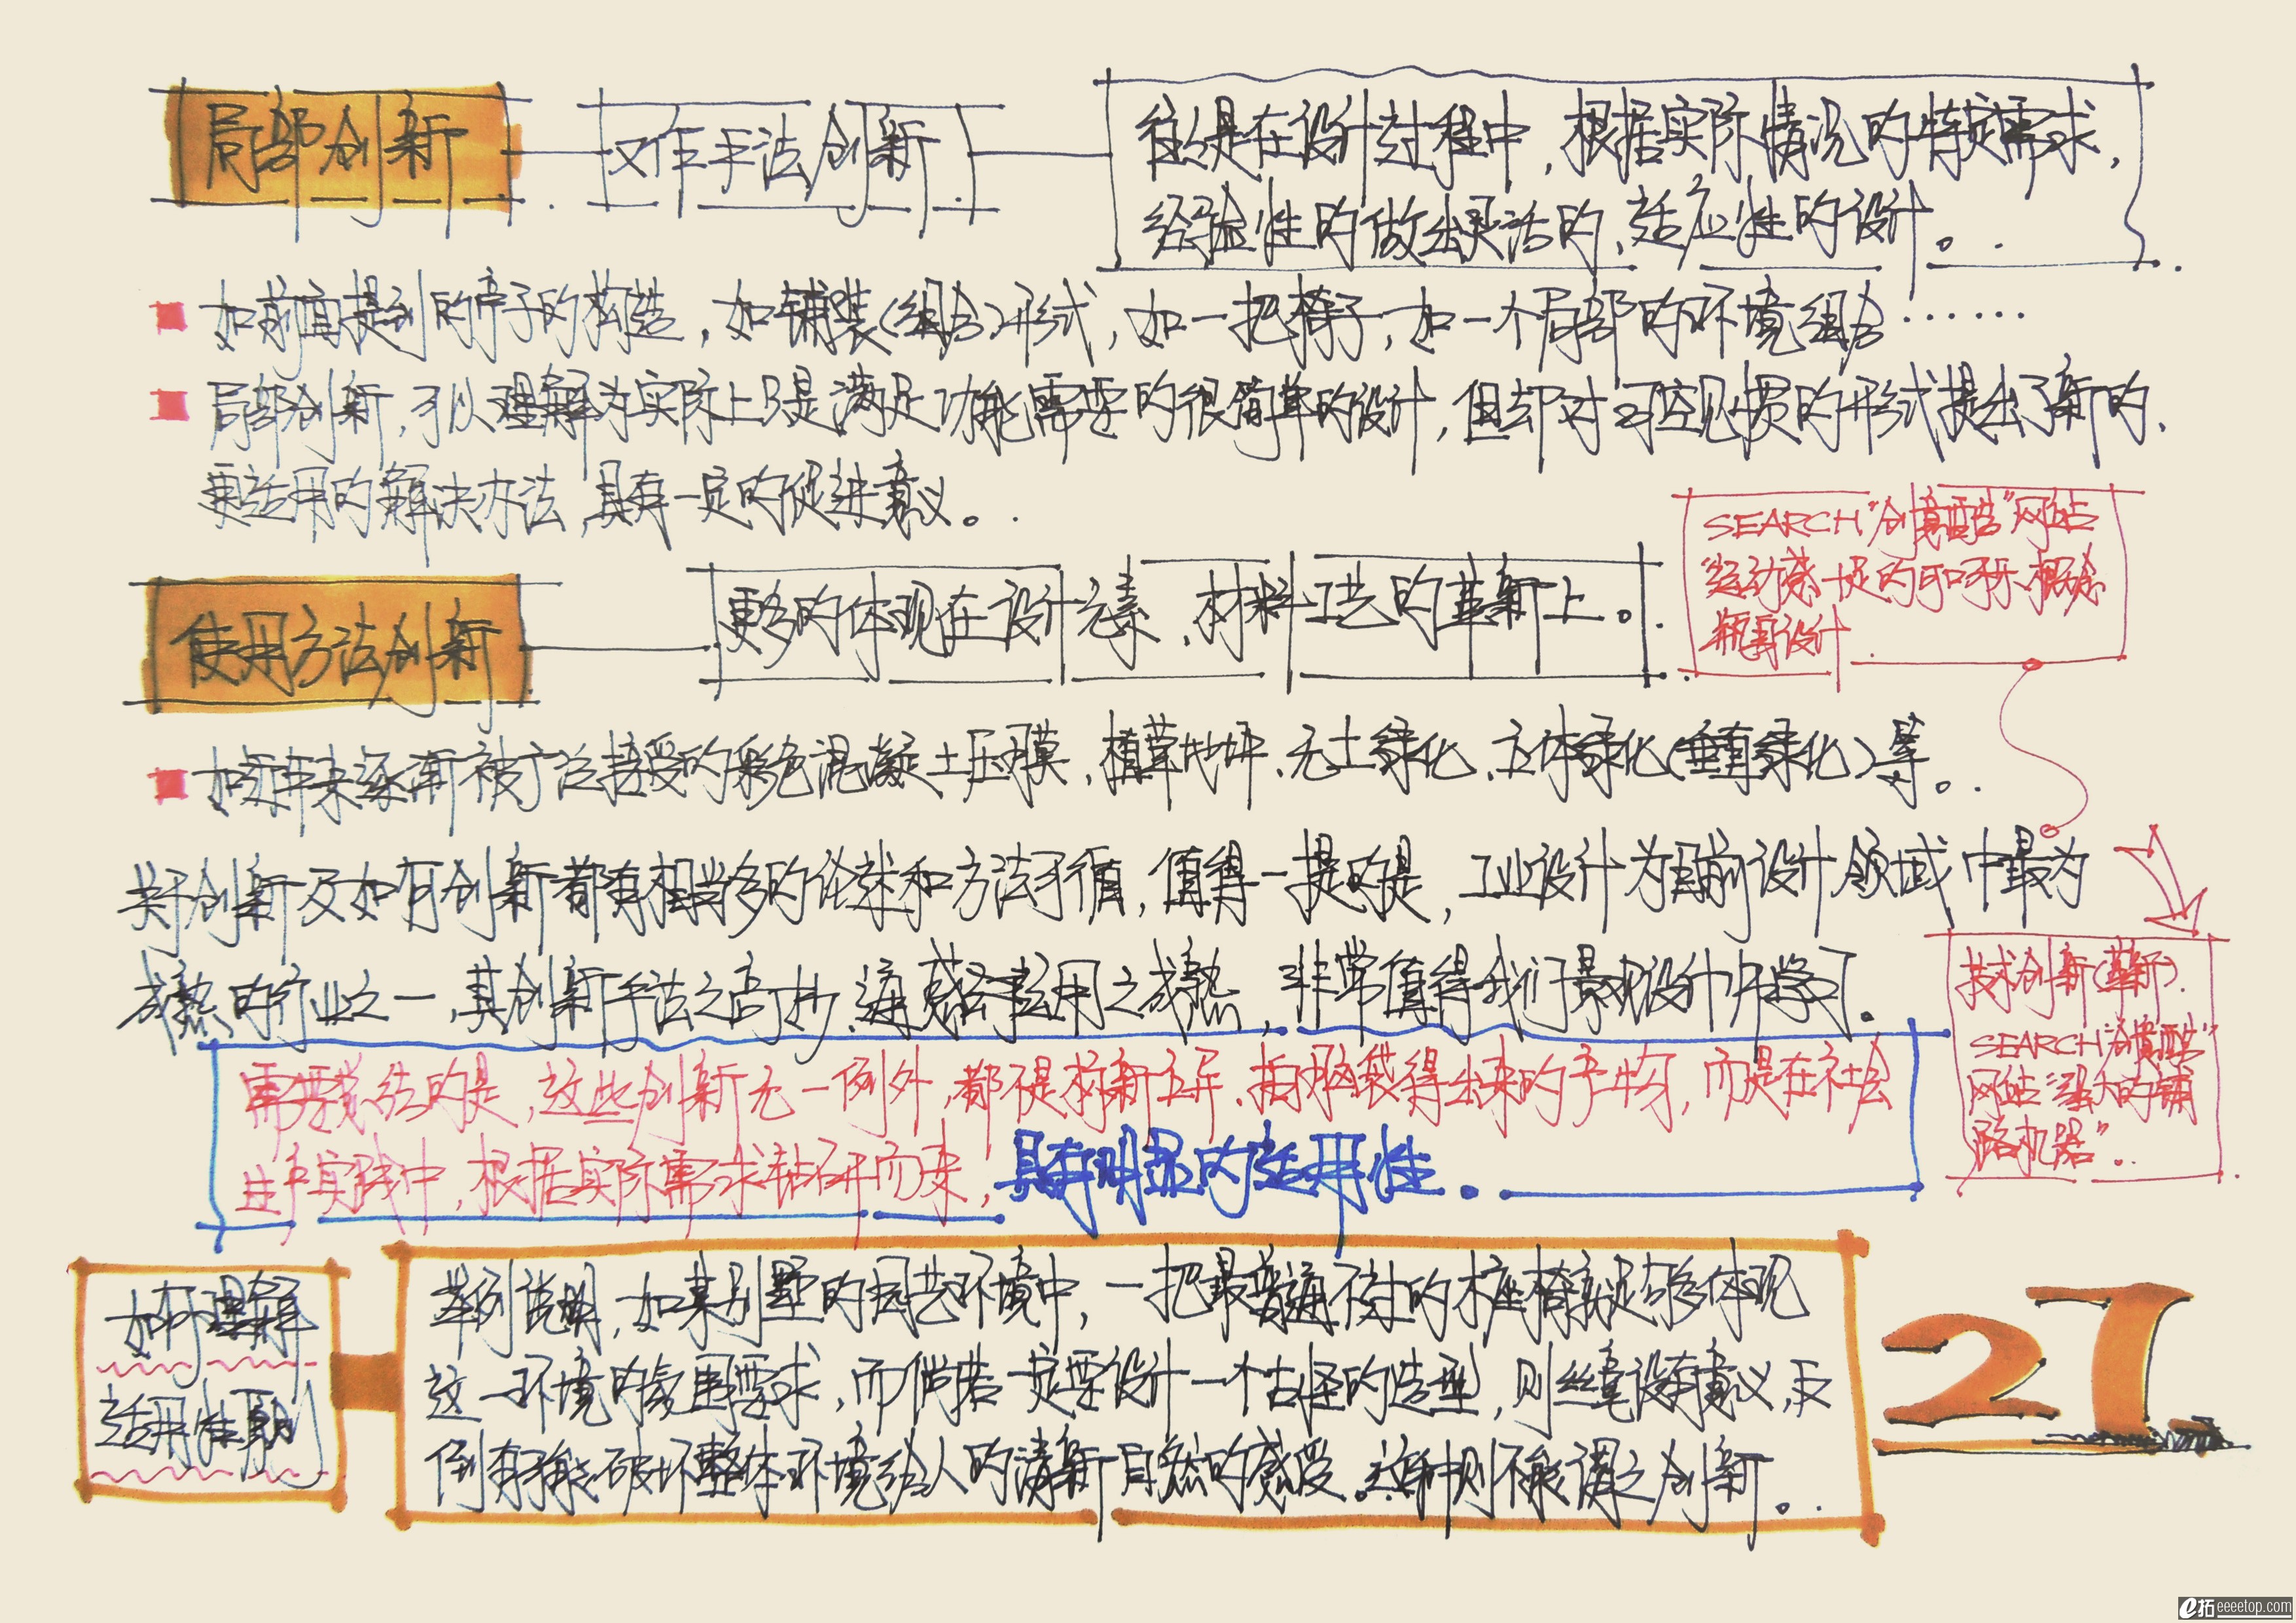 局部创新
又作手法创新
往往是在设计过程中，根据实际情况的特定需求，
经验性的做出灵活的、适应性的设计。
如前面提到的亭子的构造，如铺装（组合）形式，如一把椅子，如一个局部的环境组合……
局部创新，可以理解为实际上只是满足功能需要的很简单的设计，但却对司空见惯的形式提出了新的、
更适用的解决办法，具有一定的促进意义。
使用方法创新
更多的体现在设计元素、材料工艺的革新上。
SEARCH“创意酷”网站
“运动感十足的可口可乐概念
瓶身设计
如近年来逐渐被广泛接受的彩色混凝土压膜、植草地坪、无土绿化、立体绿化（垂直绿化）等。
关于创新及如何创新都有相当多的论述和方法可循，值得一提的是，工业设计为目前设计领域中最为
成熟的行业之一，其创新手法之高妙、运用之成熟，非常值得我们景观设计中学习。
技术创新（革新）
SEARCH“创意酷”
网站“强大的铺
路机器”
需要总结的是，这些创新无一例外，都不是标新立异、拍脑袋得出来的产物，而是在社会
生产实践中，根据实际需求钻研而来，具有明显的适用性。
如何理解
适用性原则
举例说明，如某别墅的园艺环境中，一把最普通不过的木座椅就足够体现
这一环境的氛围要求，而倘若一定要设计一个古怪的造型，则丝毫没有意义，反
倒有可能破坏整体环境给人的清新自然的感受。这种则不能谓之创新。
27
e拓 eeeetop.com